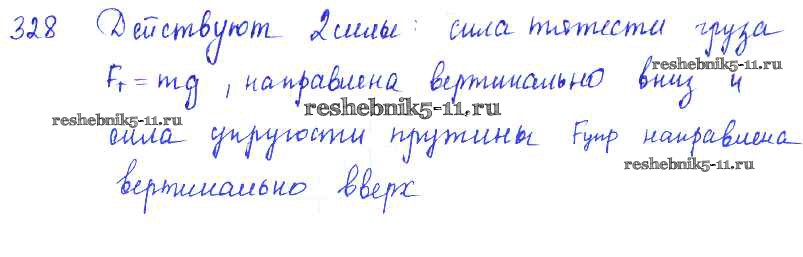 328 Действуют 2 силы: сила тяжести груза
reshebnik5-11.ru
Fт = mg, направлена вертикально вниз и
reshebnik5-11.ru
reshebnik5-11.ru
сила упругости пружины Fупр направлена
reshebnik5-11.ru
вертикально вверх